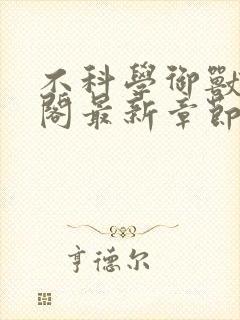 不科學御獸
閣最新章節
亨德尔